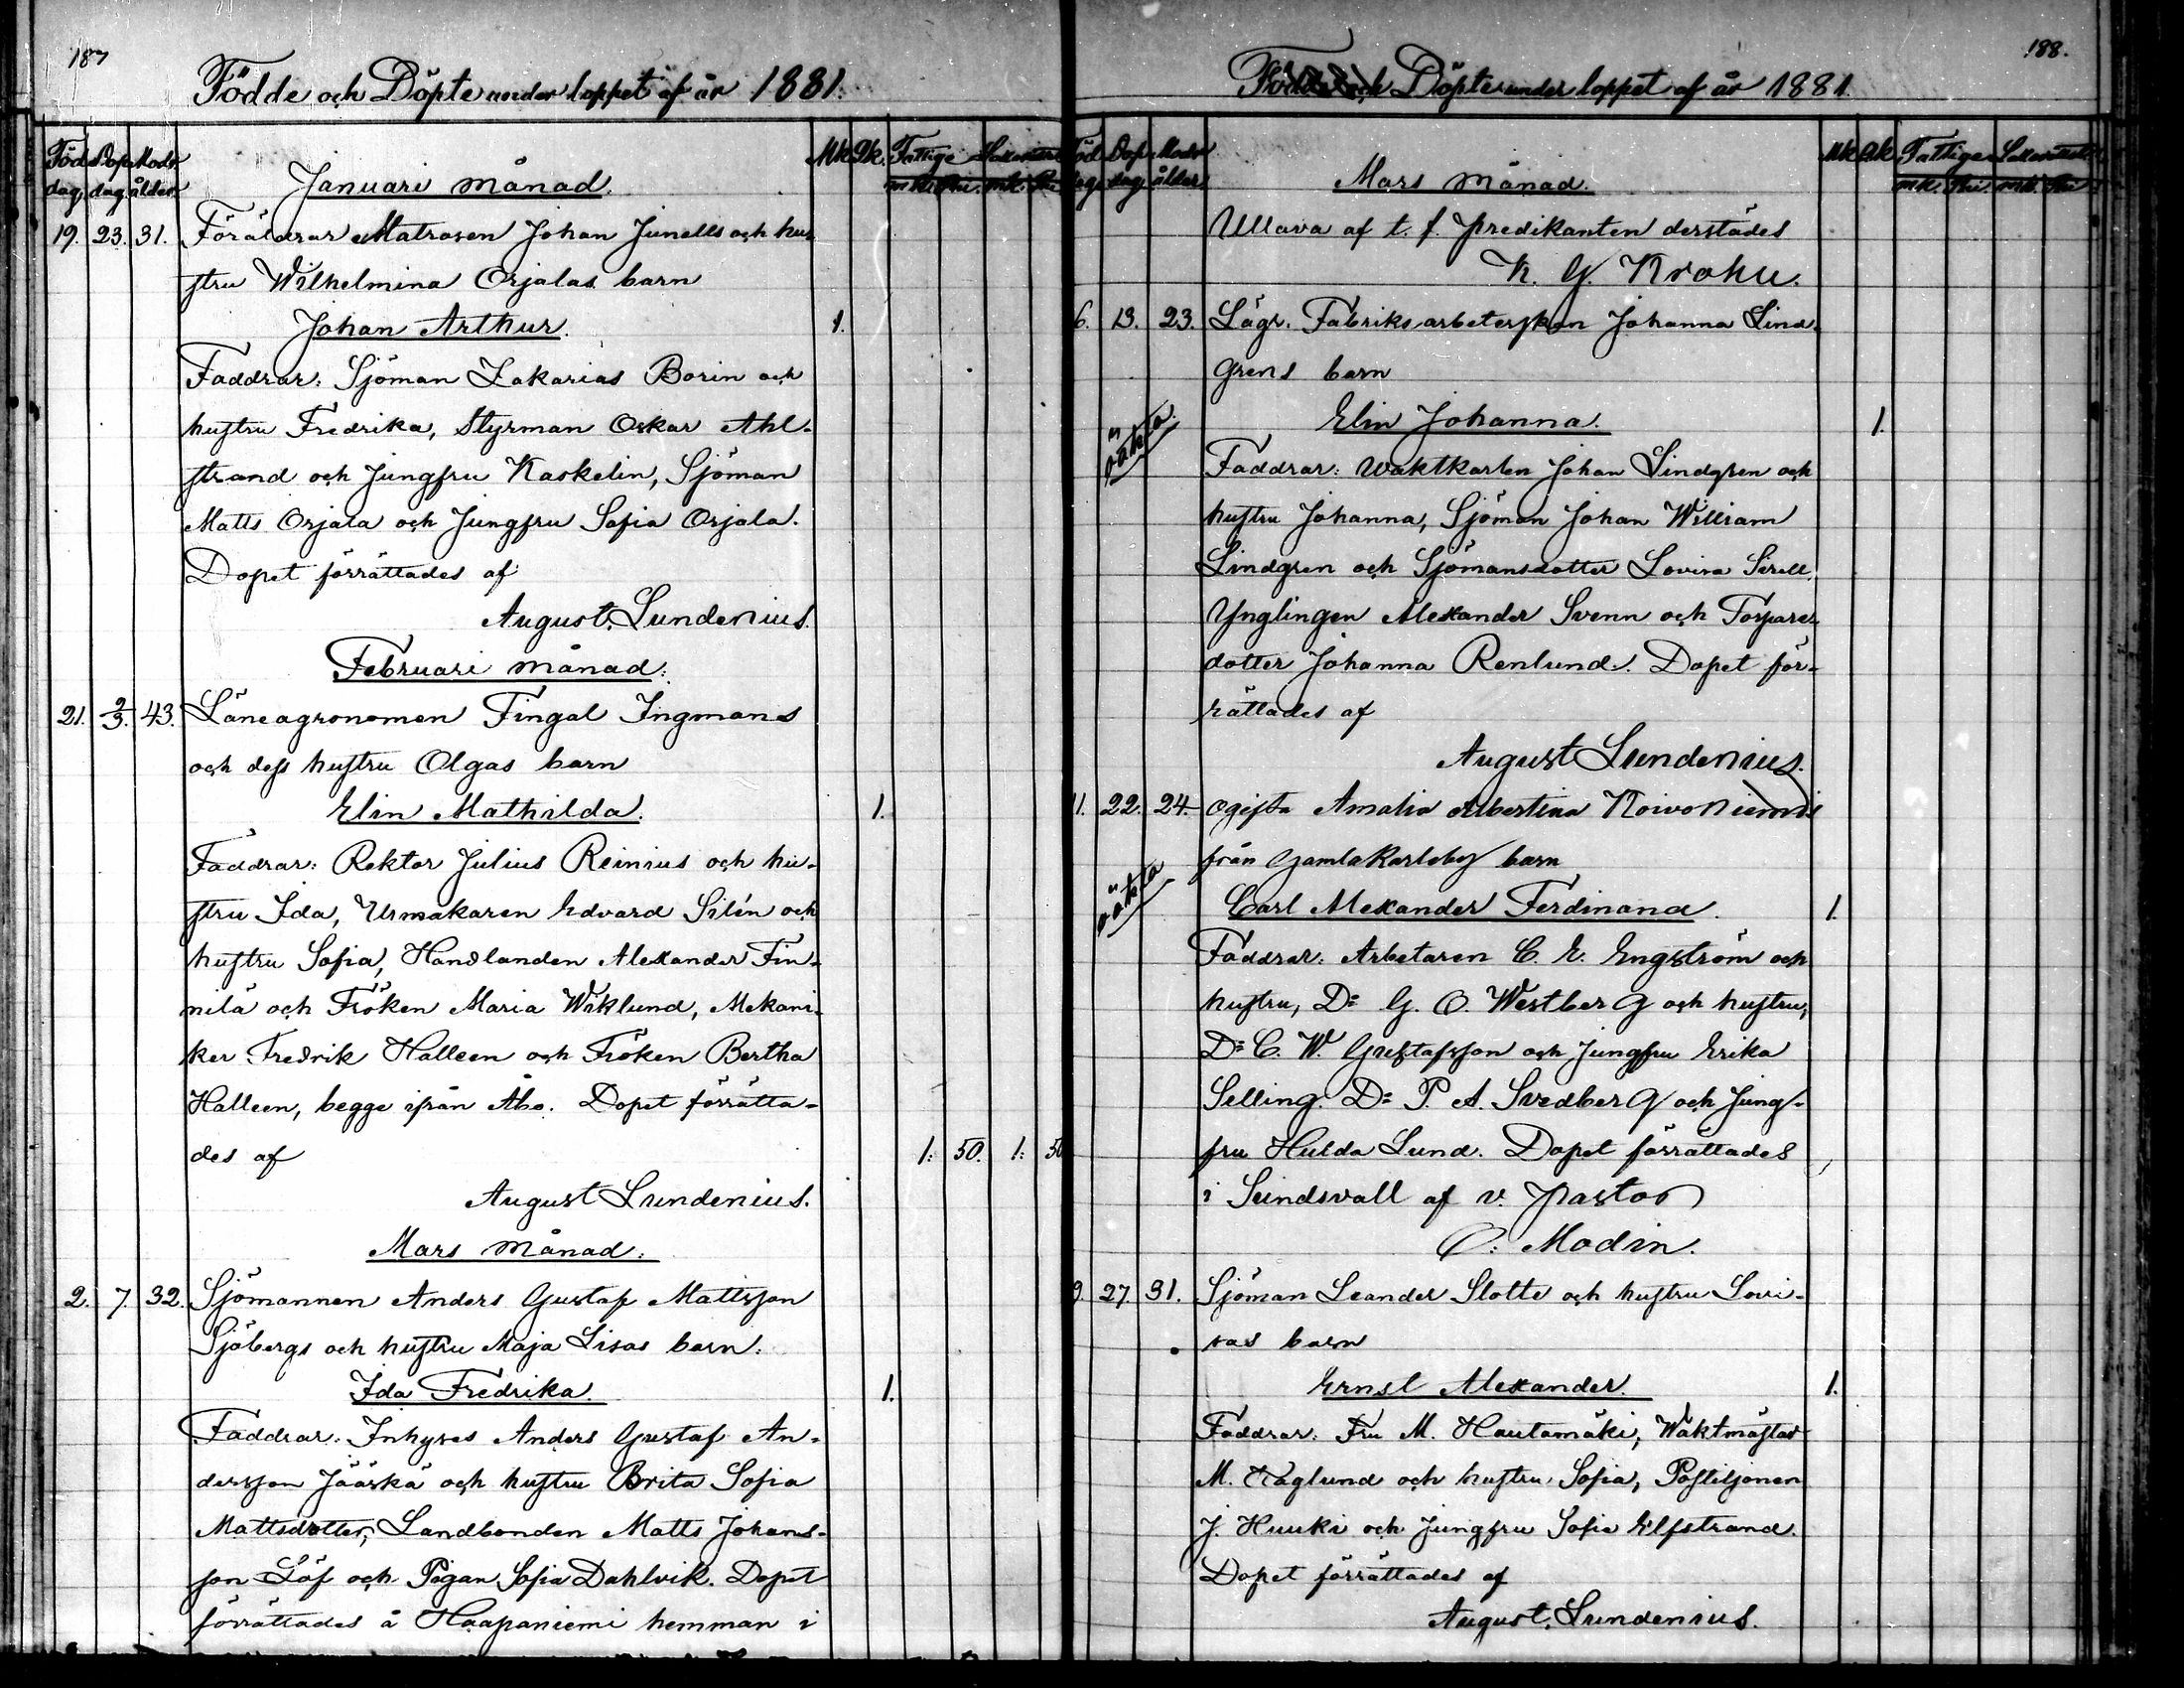 187
Födde och Döpte under loppet af år 1881.
Föd. Dop. Modr. Mk. Qk. Fattige Sakaristie
dag. dag. ålder. mk. pni. mk. pni
Januari månad.
19. 23. 31. Föräldrar Matrosen Johan Junells och hu-
stru Wilhelmina Orjalas barn
Johan Arthur. 1.
Faddrar: Sjöman Zakarias Borin och
hustru Fredrika, Styrman Oskar Ahl-
strand och Jungfru Kaskelin, Sjöman
Matts Orjala och Jungfru Sofia Orjala.
Dopet förrättades af
August Lundenius.
Februari månad.
21. 2/3. 43. Läneagronomen Fingal Ingmans
och dess hustru Olgas barn
Elin Mathilda. 1.
Faddrar: Rektor Julius Reinius och hu-
stru Ida, Urmakaren Edvard Silén och
hustru Sofia, Handlanden Alexander Fin-
nilä och Fröken Maria Wiklund, Mekani-
ker Fredrik Halleen och Fröken Bertha
Halleen, begge ifrån Åbo. Dopet förrätta-
des af 1: 50. 1: 50
August Lundenius.
Mars månad.
2. 7. 32. Sjömannen Anders Gustaf Mattsson
Sjöbergs och hustru Maja Lisas barn.
Ida Fredrika. 1.
Faddrar: Inhyses Anders Gustaf An-
dersson Jääskä och hustru Brita Sofia
Mattsdotter, Landbonden Matts Johans-
son Löf och Pigan Sofia Dahlvik. Dopet
förrättades å Haapaniemi hemman i
188.
Födde och Döpte under loppet af år 1881.
Föd. Dop. Modr. Mk. Qk. Fattige Sakaristie
dag. dag. ålder. mk. pni. mk. pni
Mars månad.
Ullava af t. f. predikanten derstädes
K. G. Krohu.
6. 13. 23. Lägr. Fabriksarbeterskan Johanna Lind-
grens barn
oäkta. Elin Johanna. 1.
Faddrar: Waktkarlen Johan Lindgren och
hustru Johanna, Sjöman Johan William
Lindgren och Sjömansdotter Lovisa Sirell,
Ynglingen Alexander Svenn och Torpare-
dotter Johanna Renlund. Dopet för-
rättades af
August Lundenius.
11. 22. 24. Ogifta Amalia Albertina Koivoniemis
från Gamlakarleby barn
oäkta Carl Alexander Ferdinand. 1.
Faddrar: Arbetaren C. E. Engström och
hustru, D:o G. O. Westberg och hustru,
D:o C. W. Gustafsson och Jungfru Erika
Selling. D:o P. A. Svedberg och Jung-
fru Hulda Lund. Dopet förrättades
i Sundsvall af v. Pastor
O. Modin.
9. 27. 31. Sjöman Leander Slotte och hustru Lovi-
sas barn
Ernst Alexander. 1.
Faddrar: Fru M. Hautamäki, Waktmästar
M. Haglund och hustru Sofia, Postiljonen
J. Huuki och Jungfru Sofia Elfstrand.
Dopet förrättades af
August Lundenius.